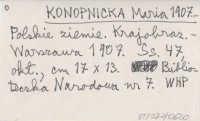 KONOPNICKA Maria 1907...
Polskie ziemie. Krajobraz. -
Warszawa 1907. Ss. 47.
okł., cm 17 x 13. Biblio-
teczka Narodowa nr 7. WHP